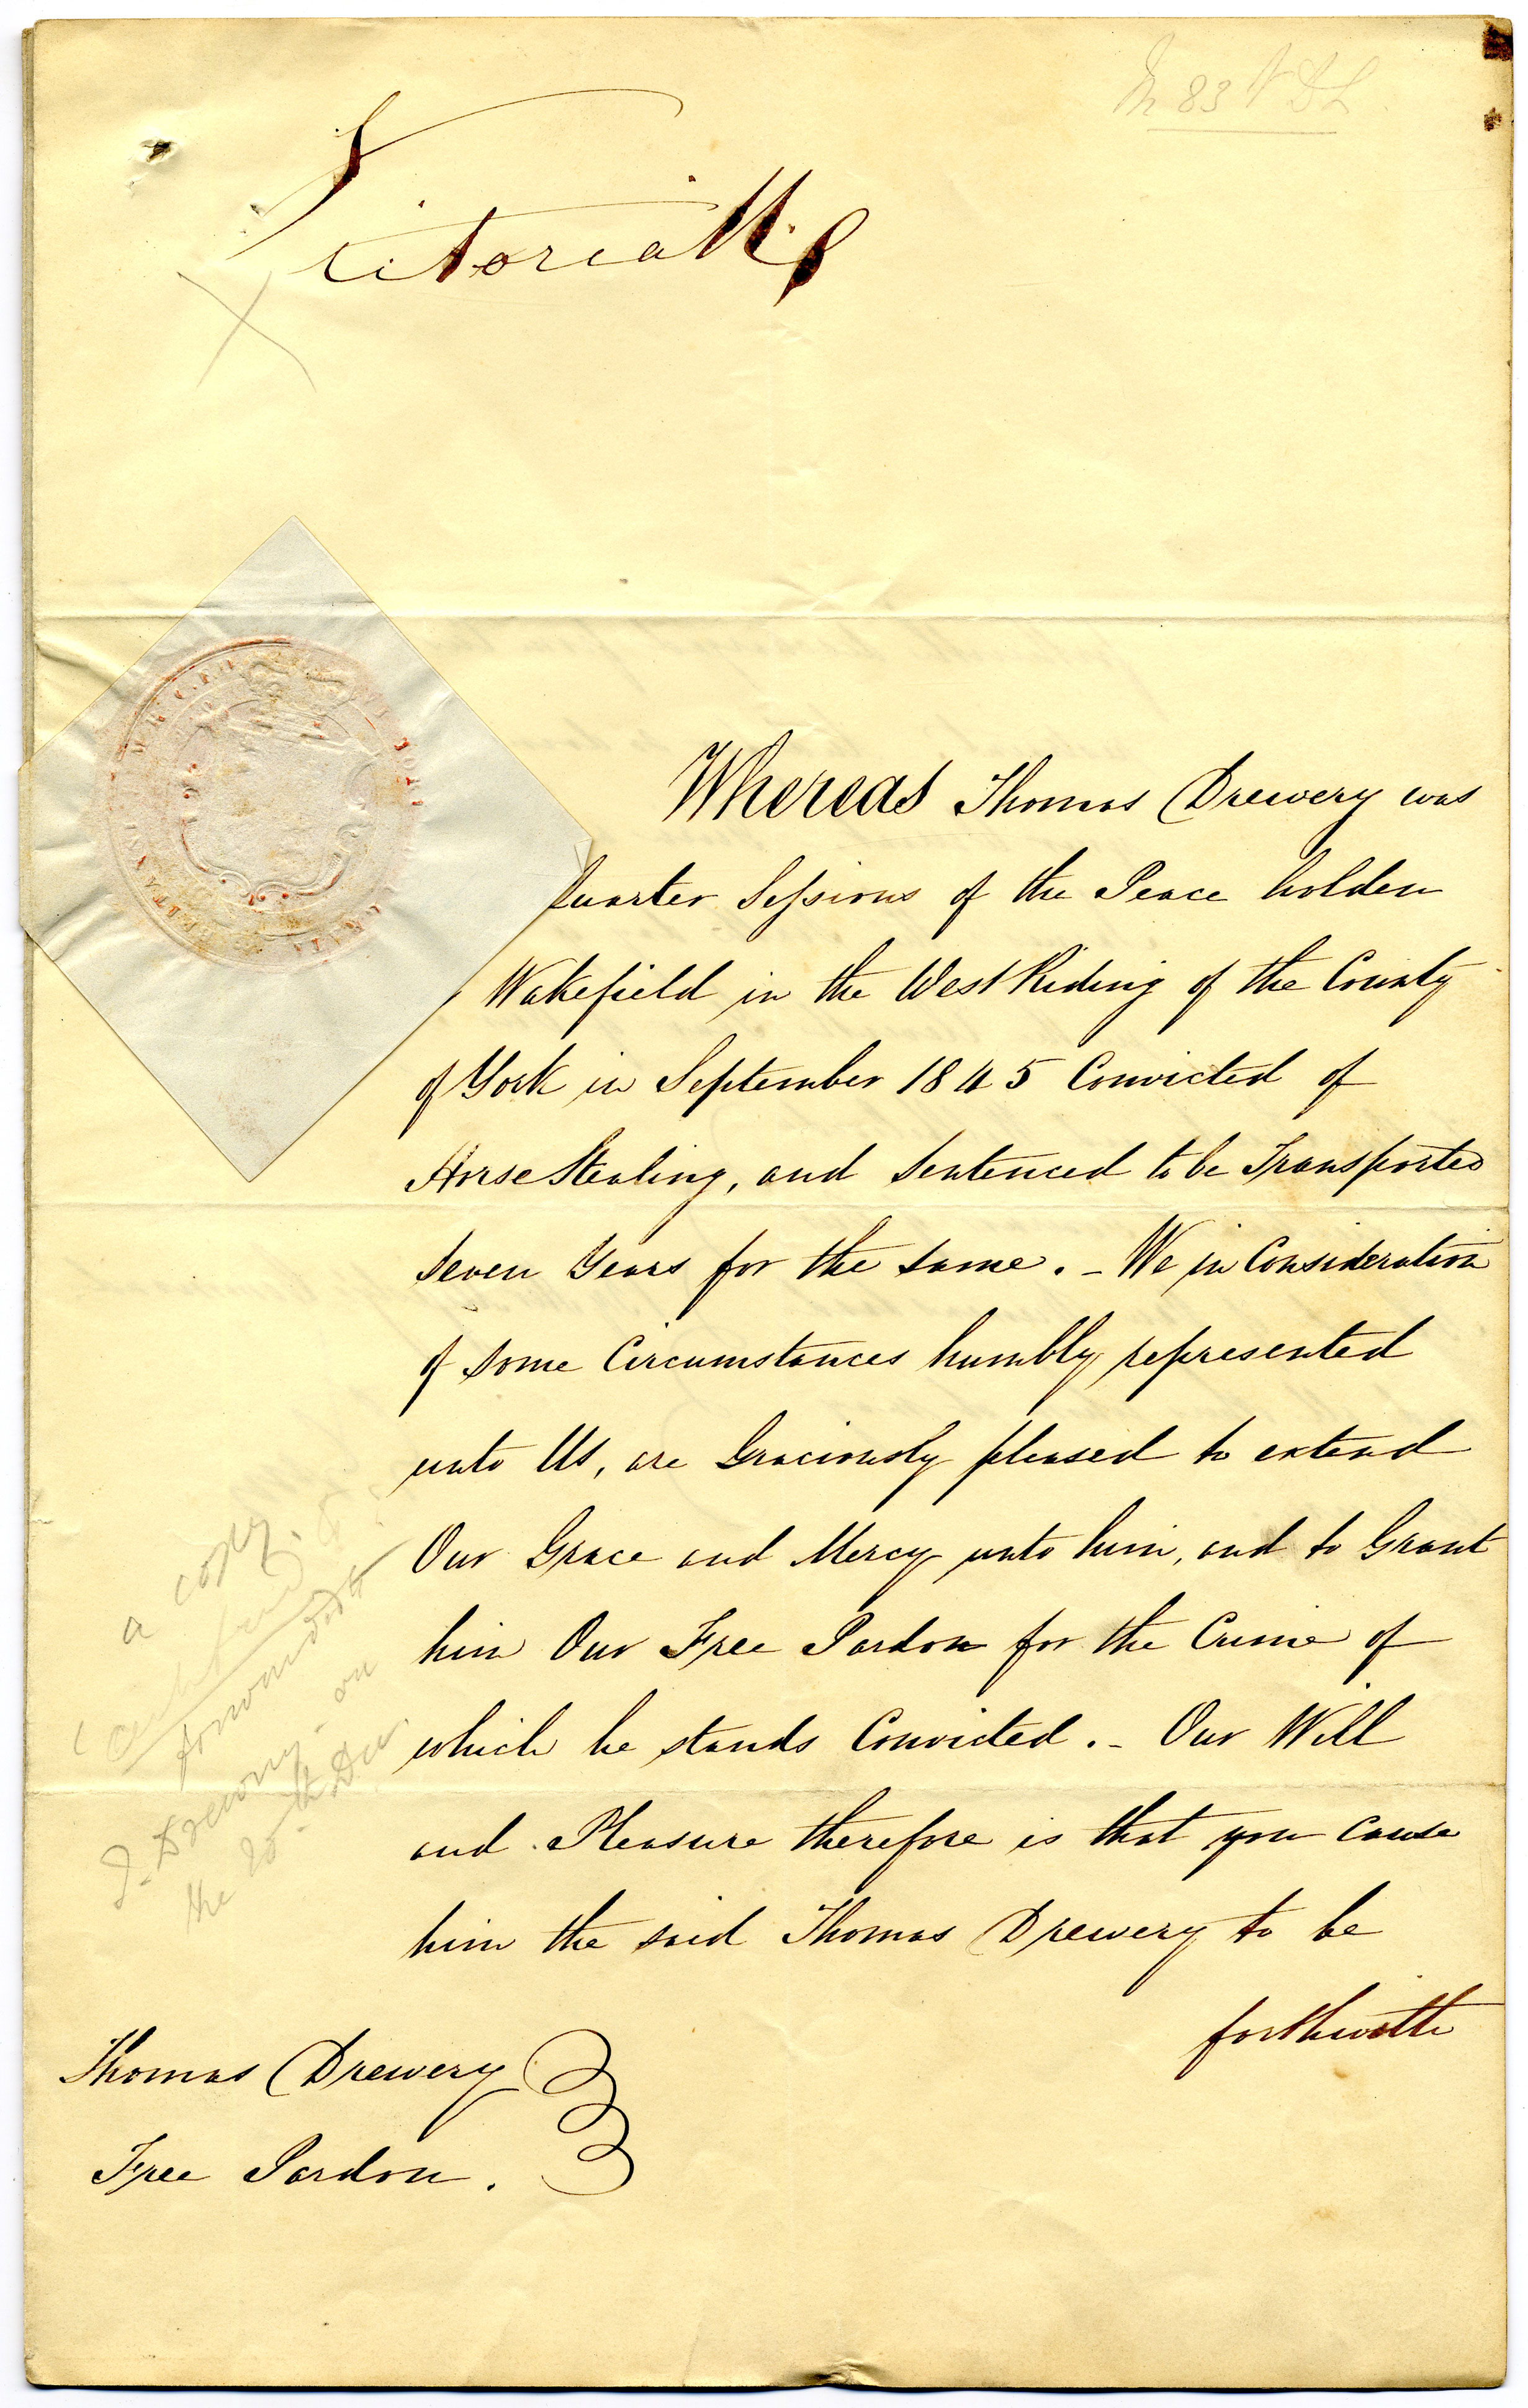 Victoria R.
Whereas Thomas Drewery was
Quarter Sessions of the Peace holden
Wakefield in the West Riding of the County
of York in September 1845 Convicted of
Horse Stealing, and Sentenced to be Transported
Seven Years for the same. - We in Consideration
of some Circumstances humbly represented
unto Us, are Graciously pleased to extend
Our Grace and Mercy unto him, and to Grant
him Our Free Pardon for the Crime of
which he stands Convicted. - Our Will
and Pleasure therefore is that you cause
him the said Thomas Drewery to be
forthwith
a copy
forwarded to
T. Drewery on
the 20th Dec.
Thomas Drewery
Free Pardon.